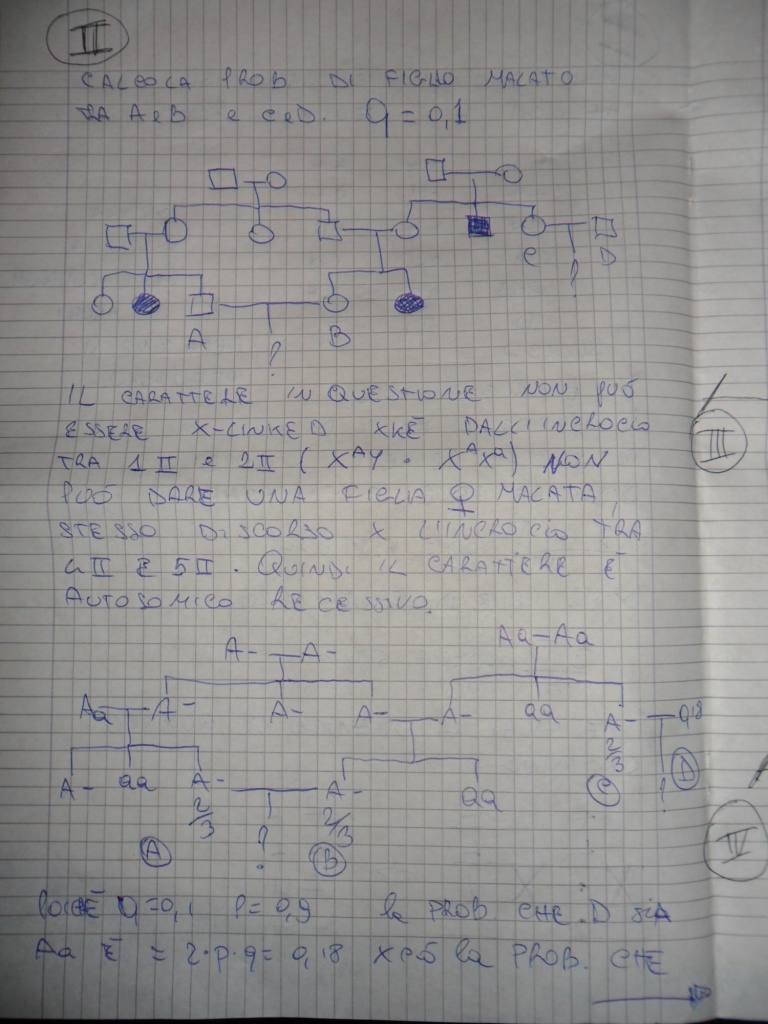 II
CALCOLA PROB DI FIGLIO MALATO
TRA A e B e C e D. q = 0,1
C D
?
A B
?
IL CARATTERE IN QUESTIONE NON PUÒ
ESSERE X-LINKED XKÈ DALL'INCROCIO
TRA 1 II e 2 II ( XᴬY · XᴬXᵃ) NON
III
PUÒ DARE UNA FIGLIA ♀ MALATA,
STESSO DISCORSO X L'INCROCIO TRA
4 II E 5 II. QUINDI IL CARATTERE È
AUTOSOMICO RECESSIVO.
A- A- Aa Aa
Aa A- A- A- A- aa A- 0,18
2/3
A- aa A- A- aa C D
2/3 ? 2/3 ?
A B
IV
POICHÈ q=0,1 P= 0,9 la PROB CHE D SIA
Aa È = 2·p·q= 0,18 XCIÒ la PROB. CHE